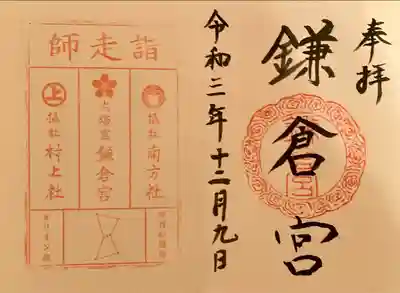 奉拝
鎌倉宮
令和三年十二月九日
師走詣
摂社 南方社
大塔宮 鎌倉宮
上
摂社 村上社
オリオン座